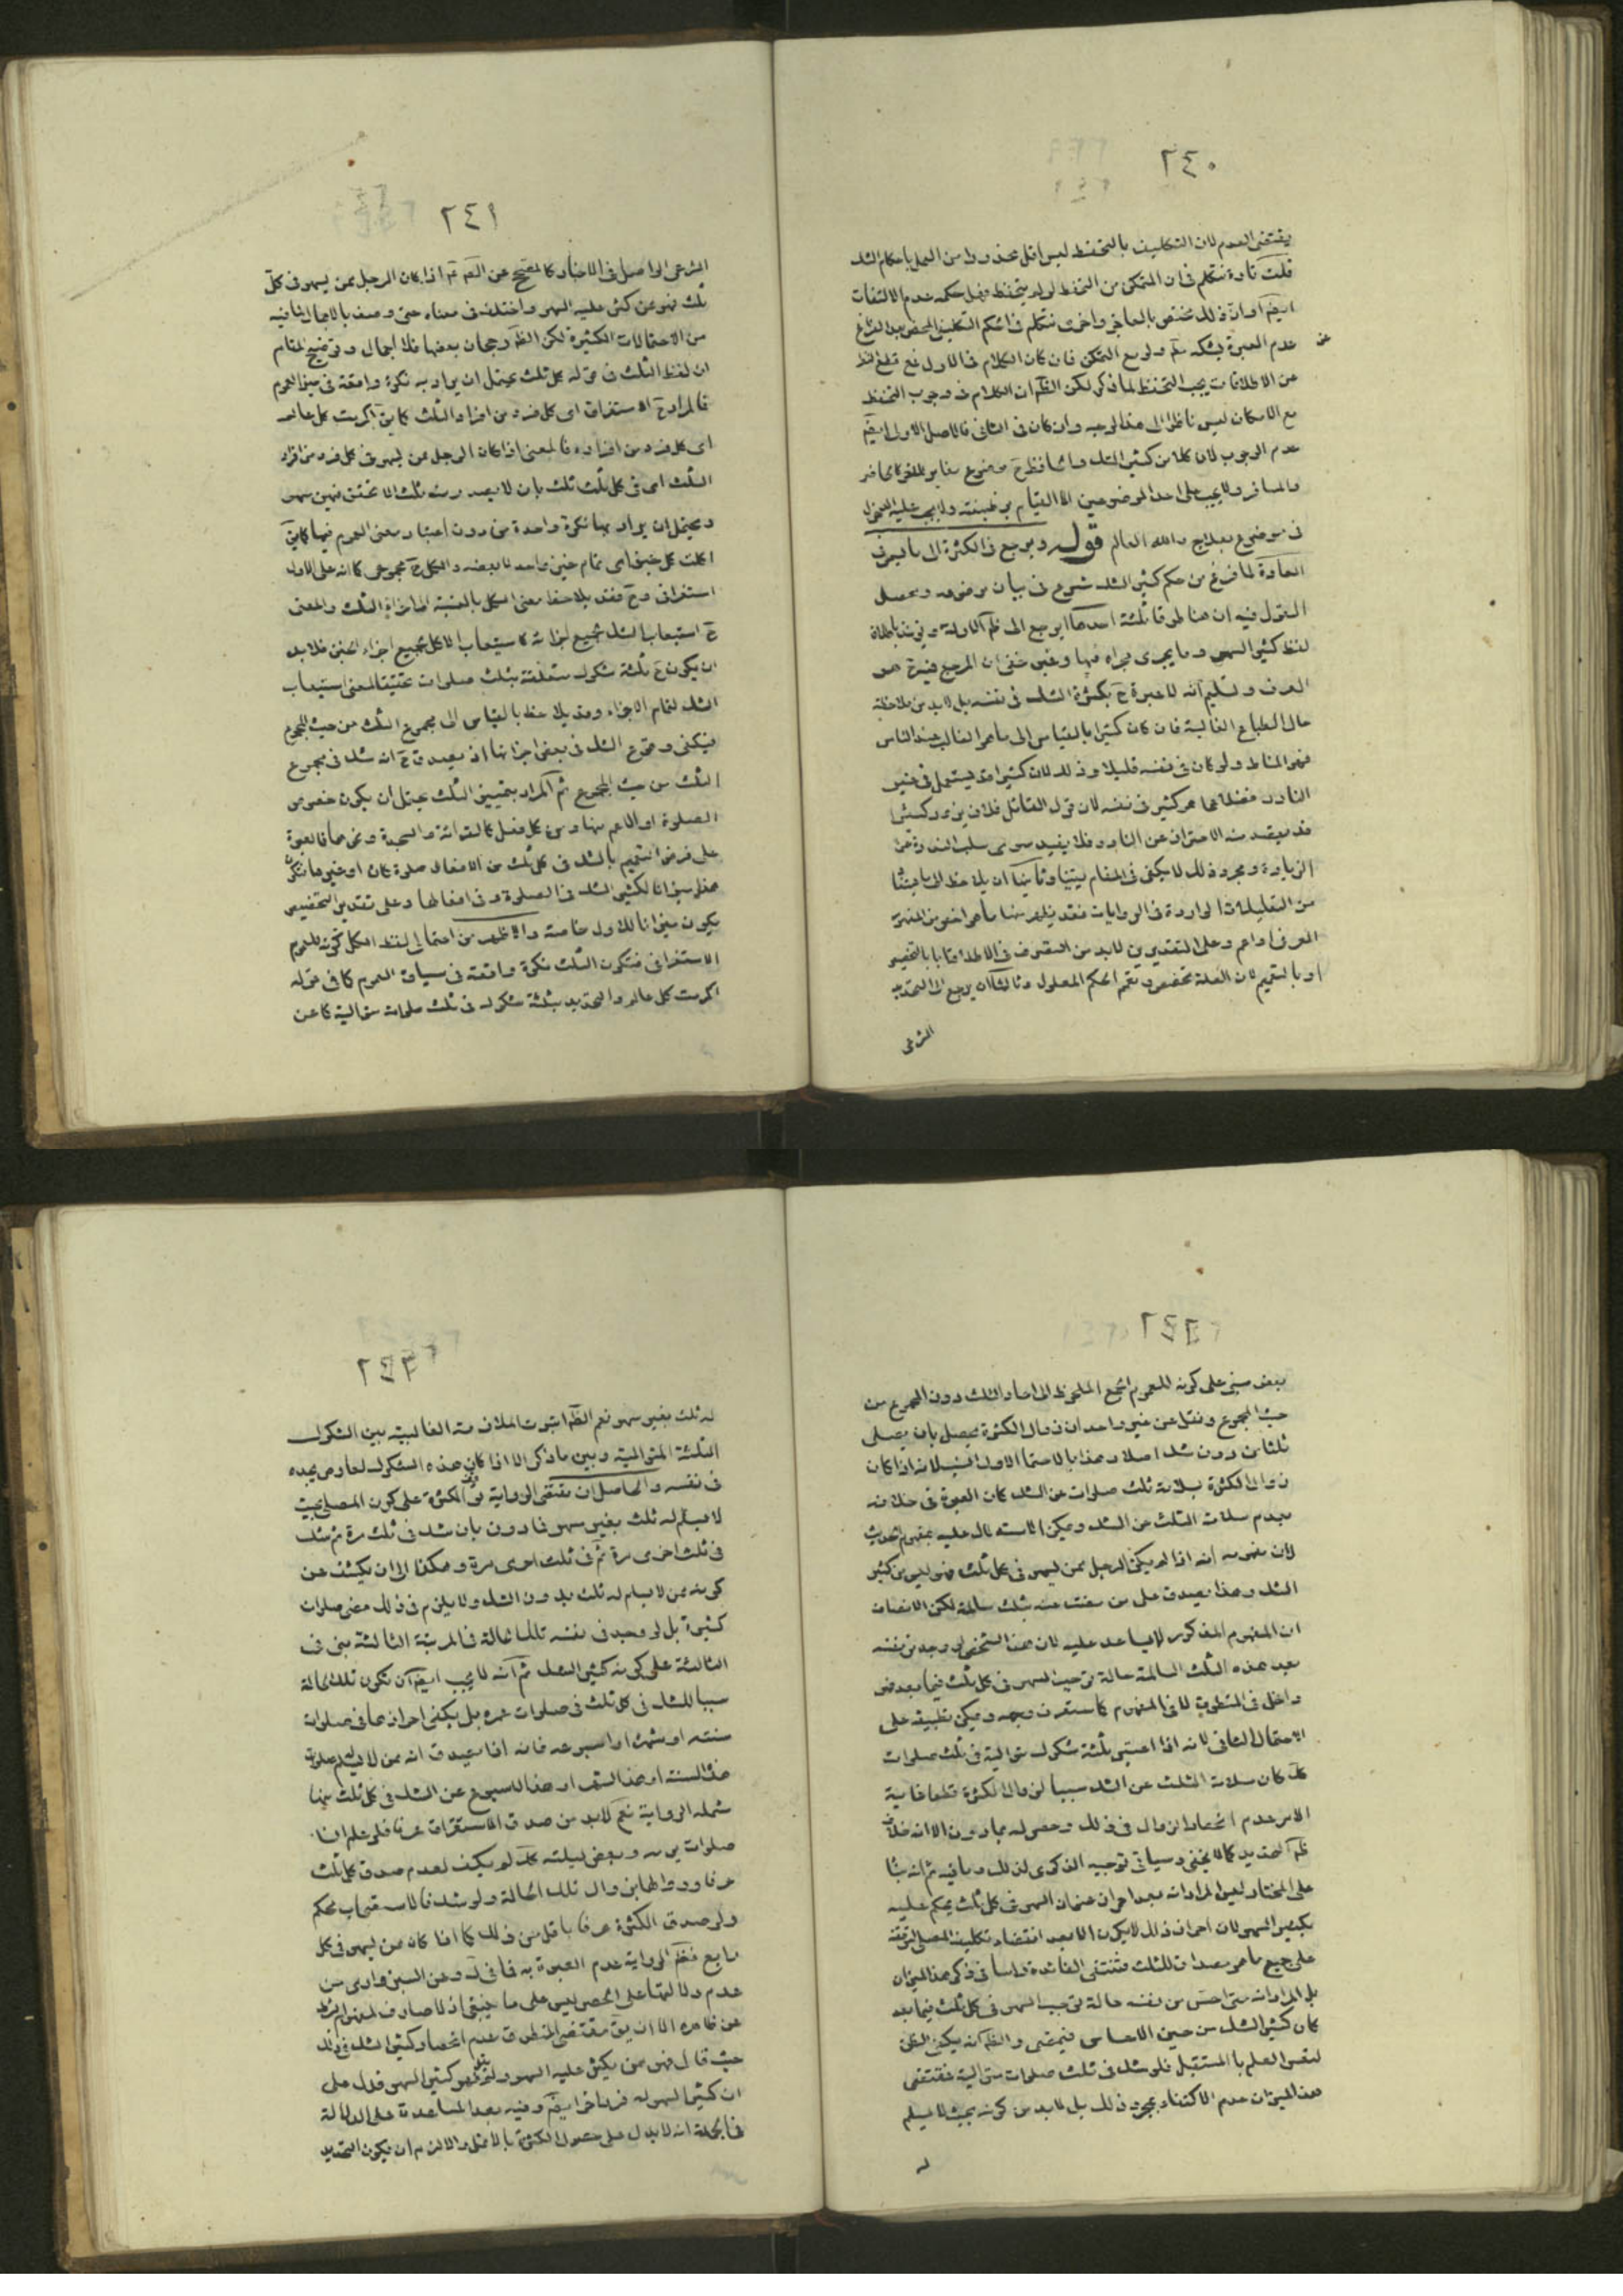 ٢٤٠
يقتضى العدم لان التكليف بالتحفظ ليس اقل محذورا من العمل باحكام الشك
قلت تارة نتكلم فى ان المتمكن من التحفظ لو لم يتحفظ فهل حكمه عدم الالتفات
ايضا او ان ذلك مختص بالعاجز واخرى نتكلم فى الحكم التكليفى المحض بعد الفراغ
عن
عدم العبرة بشكه ولو مع التمكن فان كان الكلام فى الاول فمع قطع النظر
عن الاطلاقات يجب التحفظ لما ذكر لكن الظ ان الكلام فى وجوب التحفظ
مع الامكان ليس ناظرا الى هذا الوجه وان كان فى الثانى فالاصل الاولى ايضا
عدم الوجوب لان كلا من كثير الشك والحافظ ح موضوع مغاير للاخر كالحاضر
والمسافر ولا يجب على احد الموضوعين الا القيام بوظيفته ولا يجب عليه الدخول
فى موضوع بعلاج والله العالم قوله ويرجع فى الكثرة الى ما يسمى
العادة لما فرغ من حكم كثير الشك شرع فى بيان موضوعه ومحصل
القول فيه ان هنا طرقا ثلثة احدها ان يرجع الى ظ الادلة ونريد باطلاق
لفظ كثير السهو وما يجرى مجراه فيها وغير خفى ان المرجع فيه هو
العرف ولتعلم انه لا عبرة ح بكثرة الشك فى نفسه بل لابد من ملاحظة
حال الطباع الغالبة فان كان كثيرا بالقياس الى ما هو الغالب عند الناس
فهو المناط ولو كان فى نفسه قليلا وذلك لان كثيرا قد يستعمل فى غير
النادر فضلا عما هو كثير فى نفسه لان قول القائل فلان يزورك كثيرا
قد يقصد منه الاحتراز عن النادر فلا يفيد سوى سلب الندرة عن
الزيارة ومجرد ذلك لا يكفى فى المقام يقينا وثانيها ان يلاحظ الى ما يتنا
من التعليلات الواردة فى الروايات فقد يظهر منها ما هو اخص من المفهوم
العرفى او اعم وعلى التقديرين لابد من التصرف فى الاطلاقات اما بالتخصيص
او بالتعميم لان العلة تخصص وتعمم الحكم المعلول وثالثها ان يرجع الى التحديد
الشرعى
٢٤١
الشرعى الواصل فى الاخبار كالصحيح عن الصم اذا كان الرجل ممن يسهو فى كل
ثلث فهو ممن كثر عليه السهو واختلف فى معناه حتى وصف بالاجمال لما فيه
من الاحتمالات الكثيرة لكن الظ رجحان بعضها فلا اجمال وتوضيح المقام
ان لفظ الثلث فى قوله كل ثلث يحتمل ان يراد به نكرة واقعة فى حيز العموم
فالمراد ح الاستغراق اى كل فرد من افراد الثلث كما يق اكرمت كل عالم
اى كل فرد من افراده فالمعنى اذا كان الرجل ممن يسهو فى كل فرد من افراد
الثلث اى فى كل ثلث ثلث بان لا يصدر منه ثلث الا تحقق فيهن سهو
ويحتمل ان يراد بها نكرة واحدة من دون اعتبار معنى العموم فيها كما يق
اكلت كل خبز اى تمام خبز واحد لا بعضه والكل ح مجموعى كما انه على الاول
استغراقى وح فقد يلاحظ معنى الكل بالنسبة الى اجزاء الثلث والمعنى
ح استيعاب الشك لجميع اجزائه كاستيعاب الاكل لجميع اجزاء الخبز فلا بد
ان يكون ح ثلثة شكوك متعلقة بثلث صلوات تحقيقا لمعنى استيعاب
الشك لتمام الاجزاء وقد يلاحظ بالقياس الى مجموع الثلث من حيث المجموع
فيكفى وقوع الشك فى بعض اجزائها اذ يصدق ح انه شك فى مجموع
الثلث من حيث المجموع ثم المراد بتمييز الثلث يحتمل ان يكون خصوص
الصلوة او الاعم منها ومن كل فعل كالقرائة والسجدة ونحوهما فالعبرة
على فرض التعميم بالشك فى كل ثلث من الافعال صلوة كان او غيرها فيكون
هذا ميزانا لكثير الشك فى الصلوة وفى افعالها وعلى تقدير التخصيص
يكون ميزانا للاول خاصة والاظهر من احتمالى لفظ الكل كونه للعموم
الاستغراقى فتكون الثلث نكرة واقعة فى سياق العموم كما فى قوله
اكرمت كل عالم والتحديد بثلثة شكوك فى ثلث صلوات متوالية كما عن
٢٤٢
بعض مبنى على كونه للعموم الجمع الملحوظ الى احاد الثلث دون المجموع من
حيث المجموع ونقل عن غير واحد ان زوال الكثرة يحصل بان يصلى
ثلثا من دون شك اصلا وهذا بالاحتمال الاول انسب لانه اذا كان
زوال الكثرة بسلامة ثلث صلوات عن الشك كان العبرة فى خلافه
بعدم سلامة الثلث عن الشك ويمكن الاستدلال عليه بمفهوم الحديث
لان مفهومه انه اذا لم يكن الرجل ممن يسهو فى كل ثلث فهو ليس من كثير
الشك وهذا يصدق على من مضت منه ثلث سالمة لكن الانصاف
ان المفهوم المذكور لا يساعد عليه لان هذا الشخص لو وجد من نفسه
بعد هذه الثلث السالمة حالة توجب السهو فى كل ثلث فيما بعد فهو
داخل فى المنطوق لا فى المفهوم كما ستعرف وجهه ويمكن تطبيقه على
الاحتمال الثانى لانه اذا اعتبر ثلثة شكوك متوالية فى ثلث صلوات
كك كان سلامة الثلث عن الشك سببا لزوال الكثرة قطعا غاية
الامر عدم انحصار الزوال فى ذلك وحصوله بما دون الا انه خلاف
ظ التحديد كما لا يخفى وسياتى توجيه الذكرى لذلك وما فيه ثم انه بناء
على المختار ليس المراد انه بعد احراز عنوان السهو فى كل ثلث يحكم عليه
بكثير السهو لان احراز ذلك لا يكون الا بعد انقضاء تكليف المصلى لتوقفه
على جميع ما هو مصداق للثلث فتنتفى الفائدة راسا فى ذكر هذا الميزان
بل المراد انه متى احس من نفسه حالة توجب السهو فى كل ثلث فيما بعد
كان كثير الشك من حين الاحساس فيمضى والظ انه يكفى الظن
لتعسر العلم بالمستقبل فلو شك فى ثلث صلوات متوالية فمقتضى
هذا الميزان عدم الاكتفاء بمجرد ذلك بل لابد من كونه بحيث لا يسلم
له
٢٤٣
له ثلث بغير سهو نعم الظ ثبوت الملازمة الغالبية بين الشكوك
الثلثة المتوالية وبين ما ذكر الا اذا كان هذه الشكوك لعارض يجده
فى نفسه والحاصل ان مقتضى الرواية الكثرة على كون المصلى بحيث
لا يسلم له ثلث بغير سهو فما دون بان شك فى ثلث مرة ثم شك
فى ثلث اخرى مرة ثم فى ثلث اخرى مرة وهكذا الى ان يكشف عن
كونه ممن لا يسلم له ثلث بدون الشك ولا يلزم فى ذلك مضى صلوات
كثيرة بل لو وجد فى نفسه تلك الحالة فى المرتبة الثالثة بنى فى
الثالثة على كونه كثير الشك ثم انه لا يجب ايضا ان تكون تلك الحالة
سببا للشك فى كل ثلث فى صلوات عمره بل يكفى احرازها فى صلوات
سنته او شهره او اسبوعه فانه اذا يصدق انه ممن لا يسلم صلوة
هذا السنة او هذا الشهر او هذا الاسبوع عن الشك فى كل ثلث منها
شمله الرواية نعم لابد من صدق الاستغراق عرفا فلو علم انها
صلوات يومه وبعض ليلته كك لم يكف لعدم صدق كل ثلث
عرفا ودوامها بزوال تلك الحالة ولو شك فالاستصحاب محكم
ولو صدق الكثرة عرفا باقل من ذلك كما اذا كان ممن يسهو فى كل
رابع فظ الرواية عدم العبرة به فما فى ك وعن السبزوارى من
عدم دلالتها على الحصر ليس على ما ينبغى اذ لا صارف لمفهوم الشرط
عن ظاهره الا ان يق مقتضى المنطوق عدم انحصار كثير الشك فى ذلك
حيث قال فهو ممن يكثر عليه السهو ولم يقل فهو كثير السهو فدل على
ان كثير السهو له فرد اخر ايضا وفيه بعد المساعدة على الدلالة
فى الجملة انه لا يدل على حصول الكثرة بالاقل والالزم ان يكون التحديد